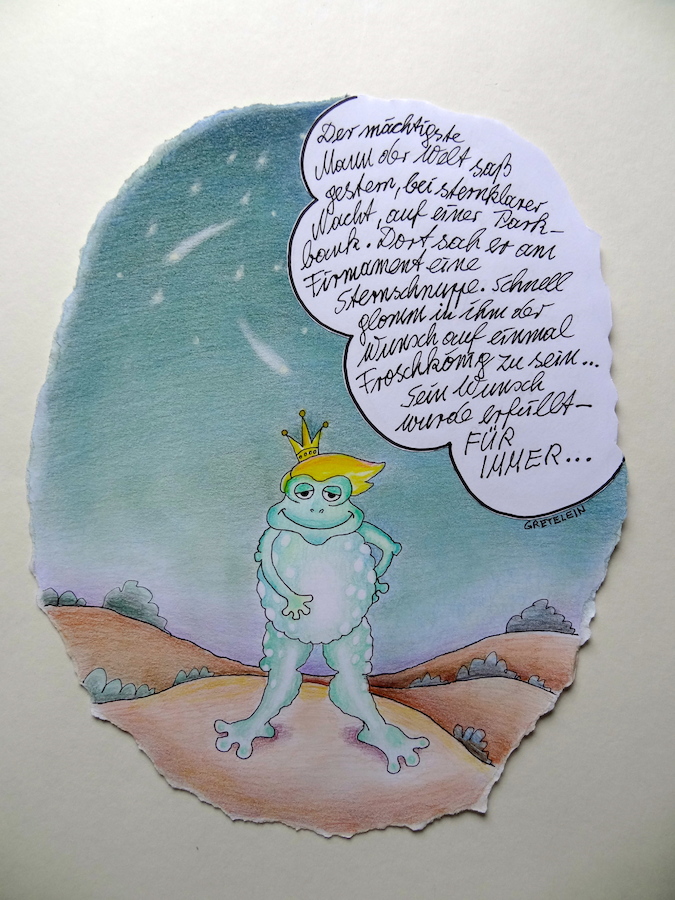 Der mächtigste
Mann der Welt saß
gestern, bei sternklarer
Nacht, auf einer Park-
bank. Dort sah er am
Firmament eine
Sternschnuppe. Schnell
glomm in ihm der
Wunsch auf einmal
Froschkönig zu sein...
Sein Wunsch
wurde erfüllt-
FÜR
IMMER...
GRETELEIN